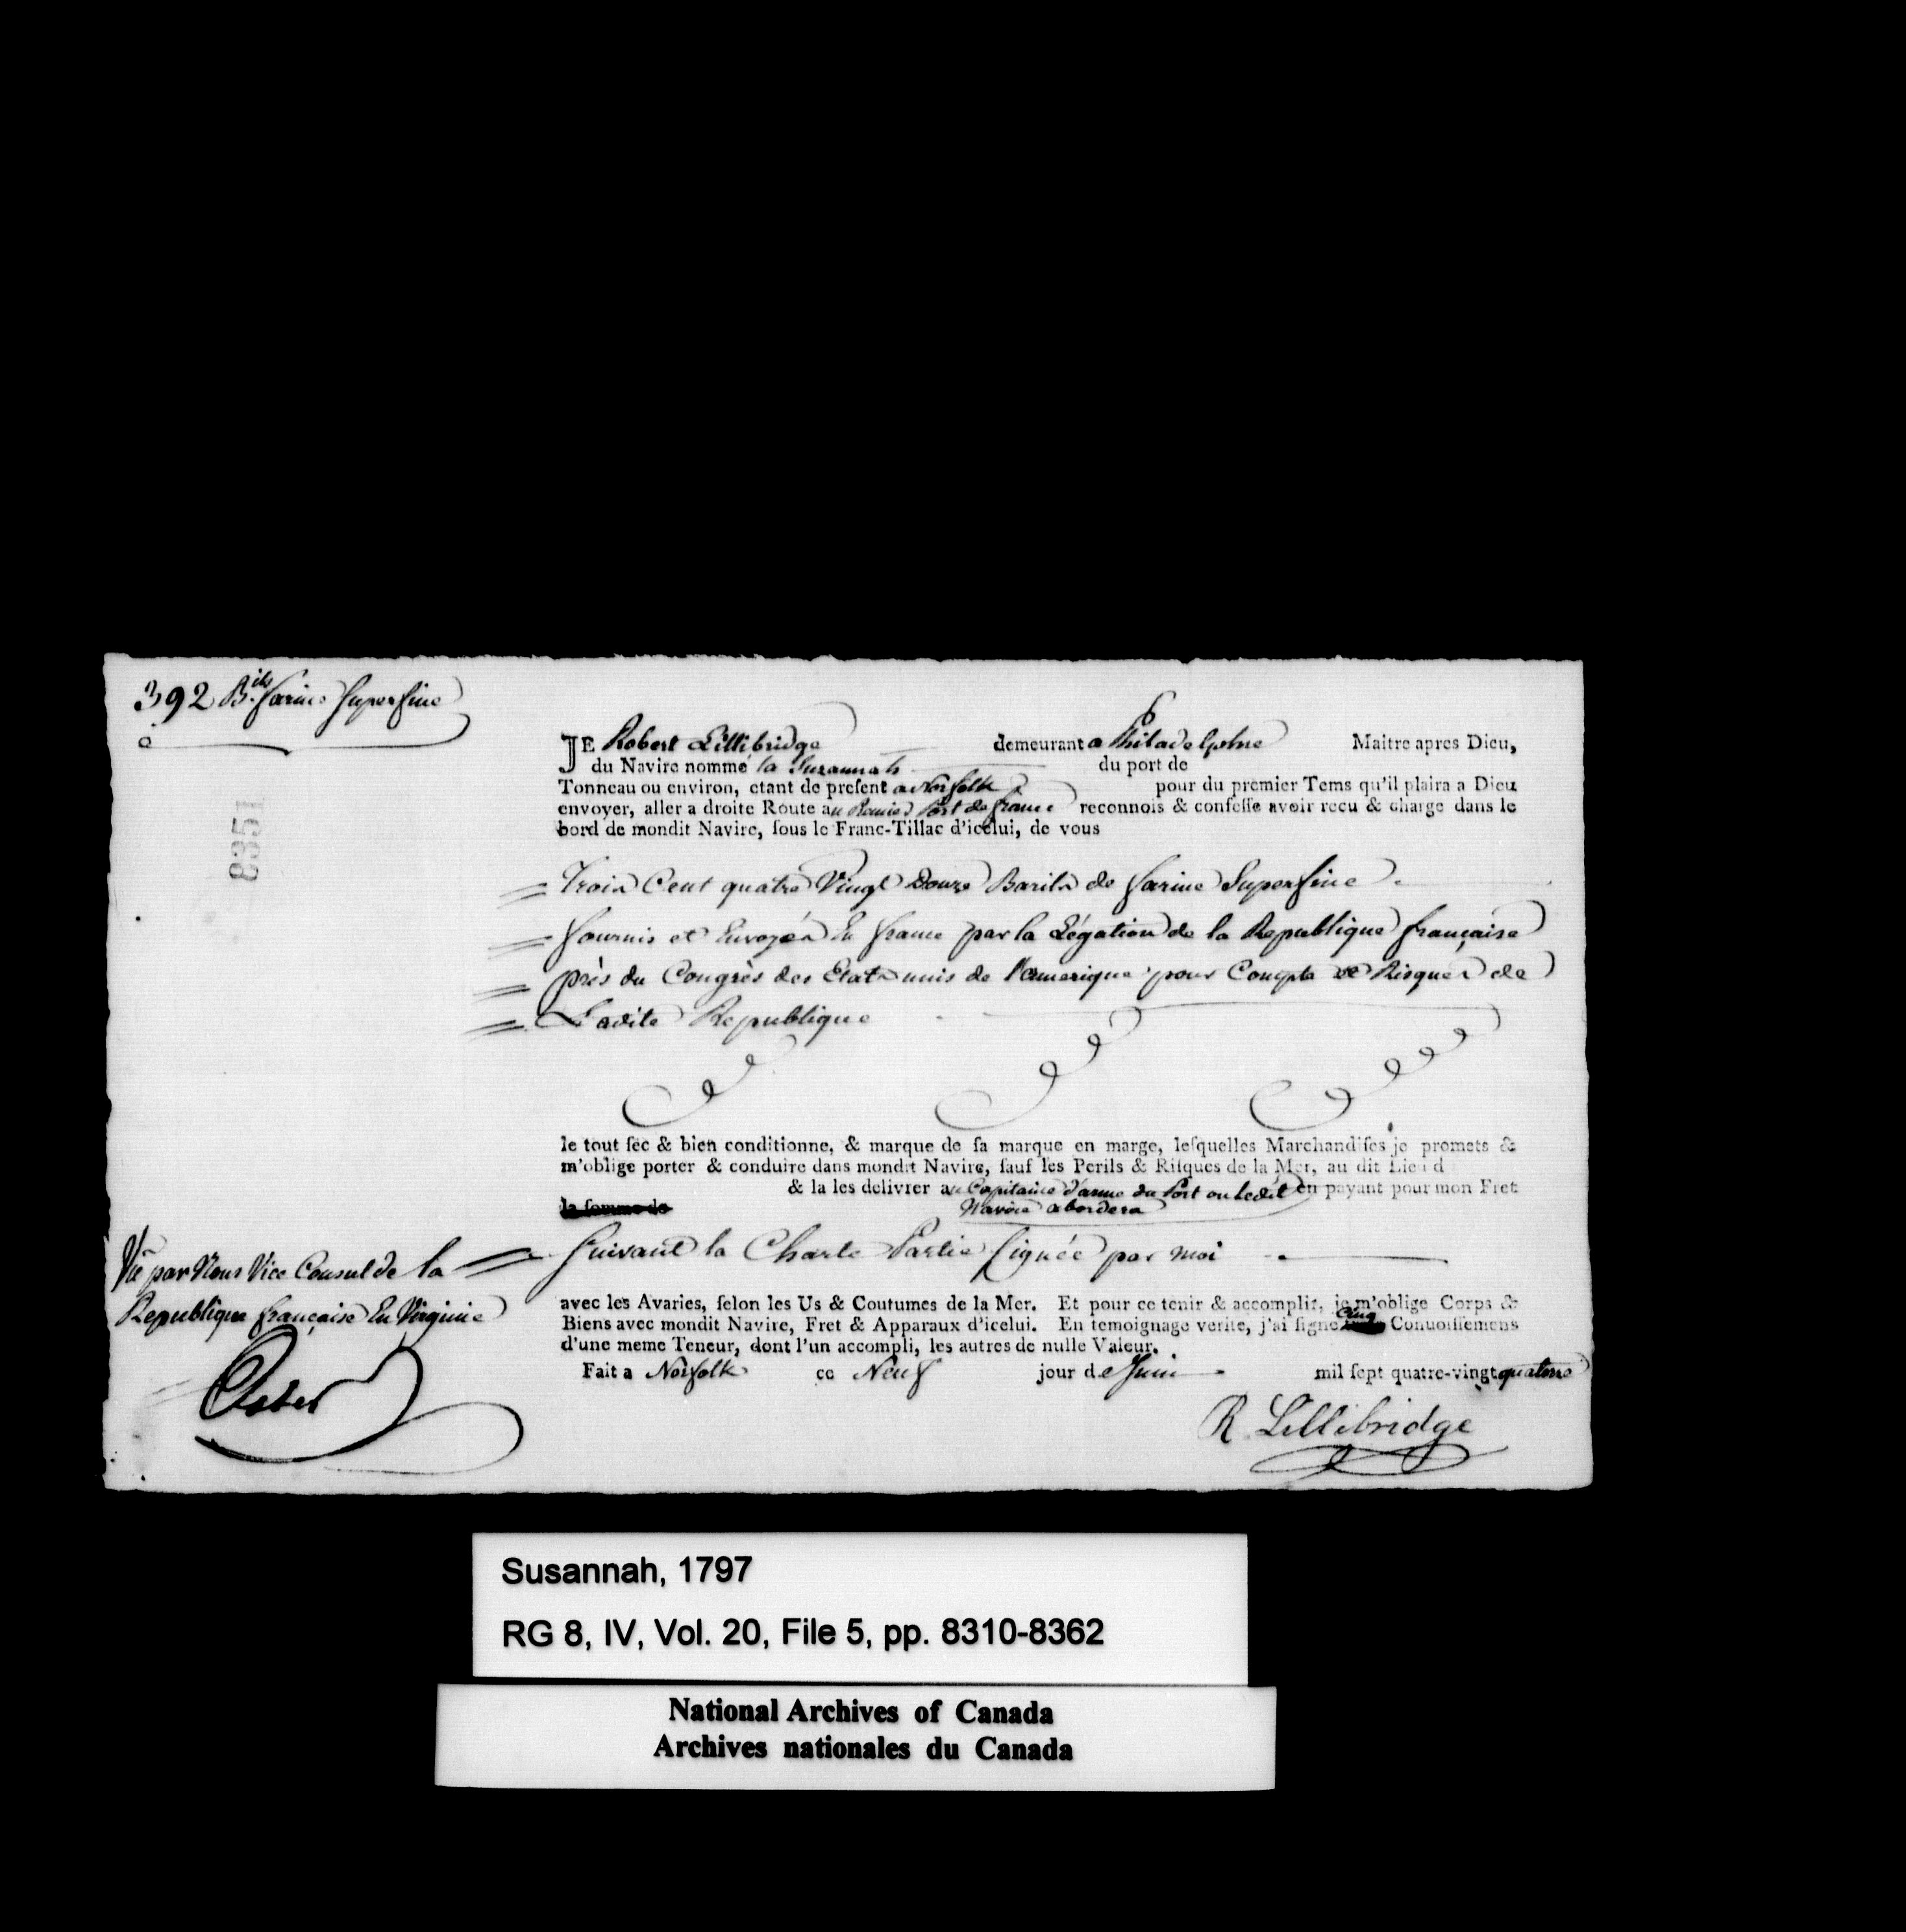 392 B.ils farine Superfine
JE Robert Lillibridge demeurant a Philadelphie Maitre apres Dieu,
du Navire nommé la Suzannah du port de
Tonneau ou environ, etant de preſent a Norfolk pour du premier Tems qu'il plaira a Dieu
envoyer, aller a droite Route au Premier Port de france reconnois & confeſſe avoir recu & charge dans le
bord de mondit Navire, ſous le Franc-Tillac d'icelui, de vous
8351
Trois Cent quatre Vingt Douze Barils de farine Superfine
fournis et Envoyés En france par la Légation de la Republique française
près du Congrès des Etats unis de l'amerique pour Compte et Risques de
Ladite Republique
le tout ſec & bien conditionne, & marque de ſa marque en marge, leſquelles Marchandiſes je promets &
m'oblige porter & conduire dans mondit Navire, ſauf les Perils & Riſques de la Mer, au dit Lieu d
& la les delivrer au Capitaine d'arme du Port ou Ledit en payant pour mon Fret
la ſomme de Navire abordera
Suivant la Charte Partie Signée par moi
Vu par Nous Vice Consul de la
Republique française En Virginie
Oster
avec les Avaries, ſelon les Us & Coutumes de la Mer. Et pour ce tenir & accomplir, je m'oblige Corps &
Biens avec mondit Navire, Fret & Apparaux d'icelui. En temoignage verite, j'ai ſigne Cinq Connoiſſemens
d'une meme Teneur, dont l'un accompli, les autres de nulle Valeur.
Fait a Norfolk ce Neuf jour de Juin mil ſept quatre-vingt quatorze
R Lillibridge
Susannah, 1797
RG 8, IV, Vol. 20, File 5, pp. 8310-8362
National Archives of Canada
Archives nationales du Canada